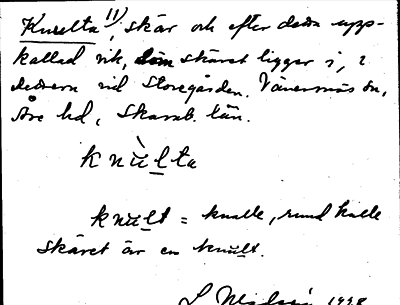 Knulta 11), skär och efter detta upp-
kallad vik, som skäret ligger i, i
vid Storegården. Vänersnäs sn,
Åse hd, Skarab. län.
knùlta
knult = knalle, rund kulle
skäret är en knult.
1928